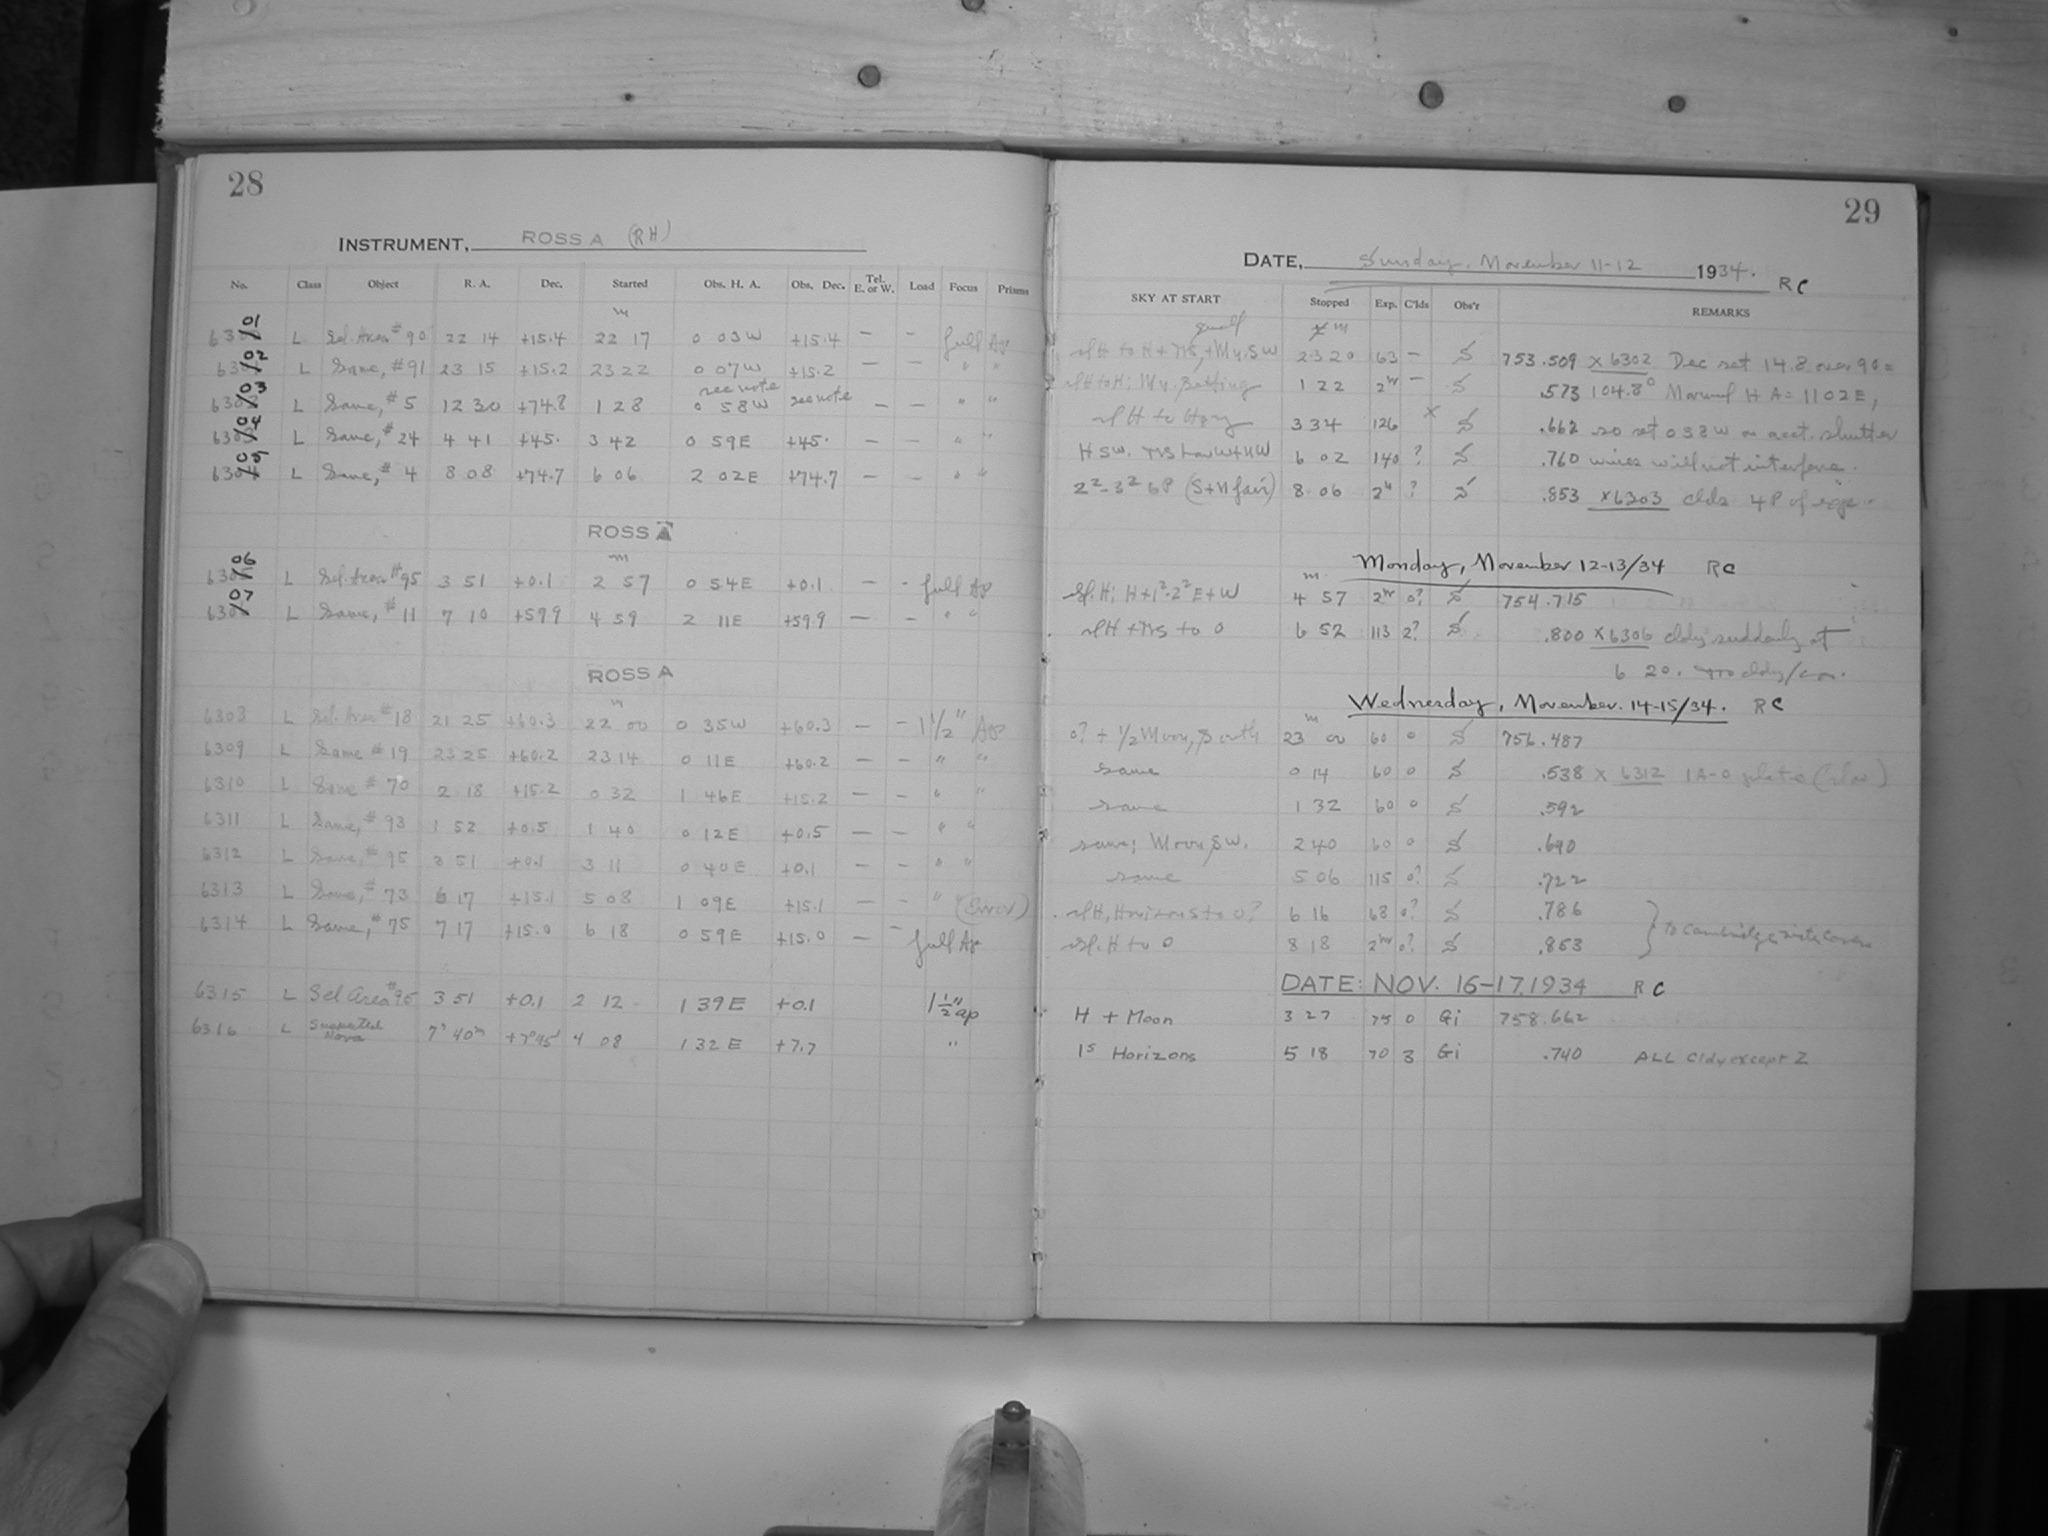 28
INSTRUMENT, ROSS A (RH)
No. Class Object R. A. Dec. Started Obs. H. A. Obs. Dec. Tel. E. or W. Load Focus Prisms
m
01 L Sel. Area #90 22 14 +15.4 22 17 0 03W +15.4 — — full Ap
02 L Same, #91 23 15 +15.2 23 22 0 07W +15.2 — — " "
see note see note
03 L Same, #5 12 30 +74.8 1 28 0 58W — — " "
04 L Same, #24 4 41 +45. 3 42 0 59E +45. — — " "
05 L Same, #4 8 08 +74.7 6 06 2 02E +74.7 — — " "
ROSS A
m
06 L Sel. Area #95 3 51 +0.1 2 57 0 54E +0.1 — - full Ap
07 L Same, #11 7 10 +59.9 4 59 2 11E +59.9 — — " "
ROSS A
m
6308 L Sel. Area #18 21 25 +60.3 22 00 0 35W +60.3 — - 1 1/2" Ap
6309 L Same #19 23 25 +60.2 23 14 0 11E +60.2 — — " "
6310 L Same #70 2 18 +15.2 0 32 1 46E +15.2 — — " "
6311 L Same, #93 1 52 +0.5 1 40 0 12E +0.5 — — " "
6312 L Same, #95 3 51 +0.1 3 11 0 40E +0.1 — — " "
6313 L Same, #73 6 17 +15.1 5 08 1 09E +15.1 — - " (Error)
6314 L Same, #75 7 17 +15.0 6 18 0 59E +15.0 — - full Ap
6315 L Sel Area #95 3 51 +0.1 2 12 1 39E +0.1 1 1/2" ap
6316 L Suspected Nova 7h 40m +7°45' 4 08 1 32 E +7.7 "
29
DATE, Sunday, November 11-12 1934. RC
SKY AT START Stopped Exp. C'lds Obs'r REMARKS
m
23 20 63 — S 753.509 x 6302 Dec set 14.8 over 90 =
1 22 2hr — S .573 104.8° Normal H A = 11 02 E,
3 34 126 x S .662 so set 0 58 W on acct. shutter
H SW. 6 02 140 ? S .760 wires will not interfere.
2²-3² 6P (S+N fair) 8 06 2h ? S .853 x6303 clds 4P of exp.
Monday, November 12-13/34 RC
m
Sl. H; H+1²-2² E+W 4 57 2hr 0? S 754.715
6 52 113 2? S .800 x6306 cldy suddenly at
6 20.
Wednesday, November. 14-15/34. RC
m
0? + 1/2 Moon, South 23 00 60 0 S 756.487
same 0 14 60 0 S .538 x 6312 1A-0 plate
same 1 32 60 0 S .592
same; Moon, SW. 2 40 60 0 S .690
same 5 06 115 0? S .722
sl H, Horizons to 0? 6 16 68 0? S .786
Sl. H to 0 8 18 2hr 0? S .853
DATE: NOV. 16-17, 1934 RC
H + Moon 3 27 75 0 Gi 758.662
1s Horizons 5 18 70 3 Gi .740 ALL Cldy except Z